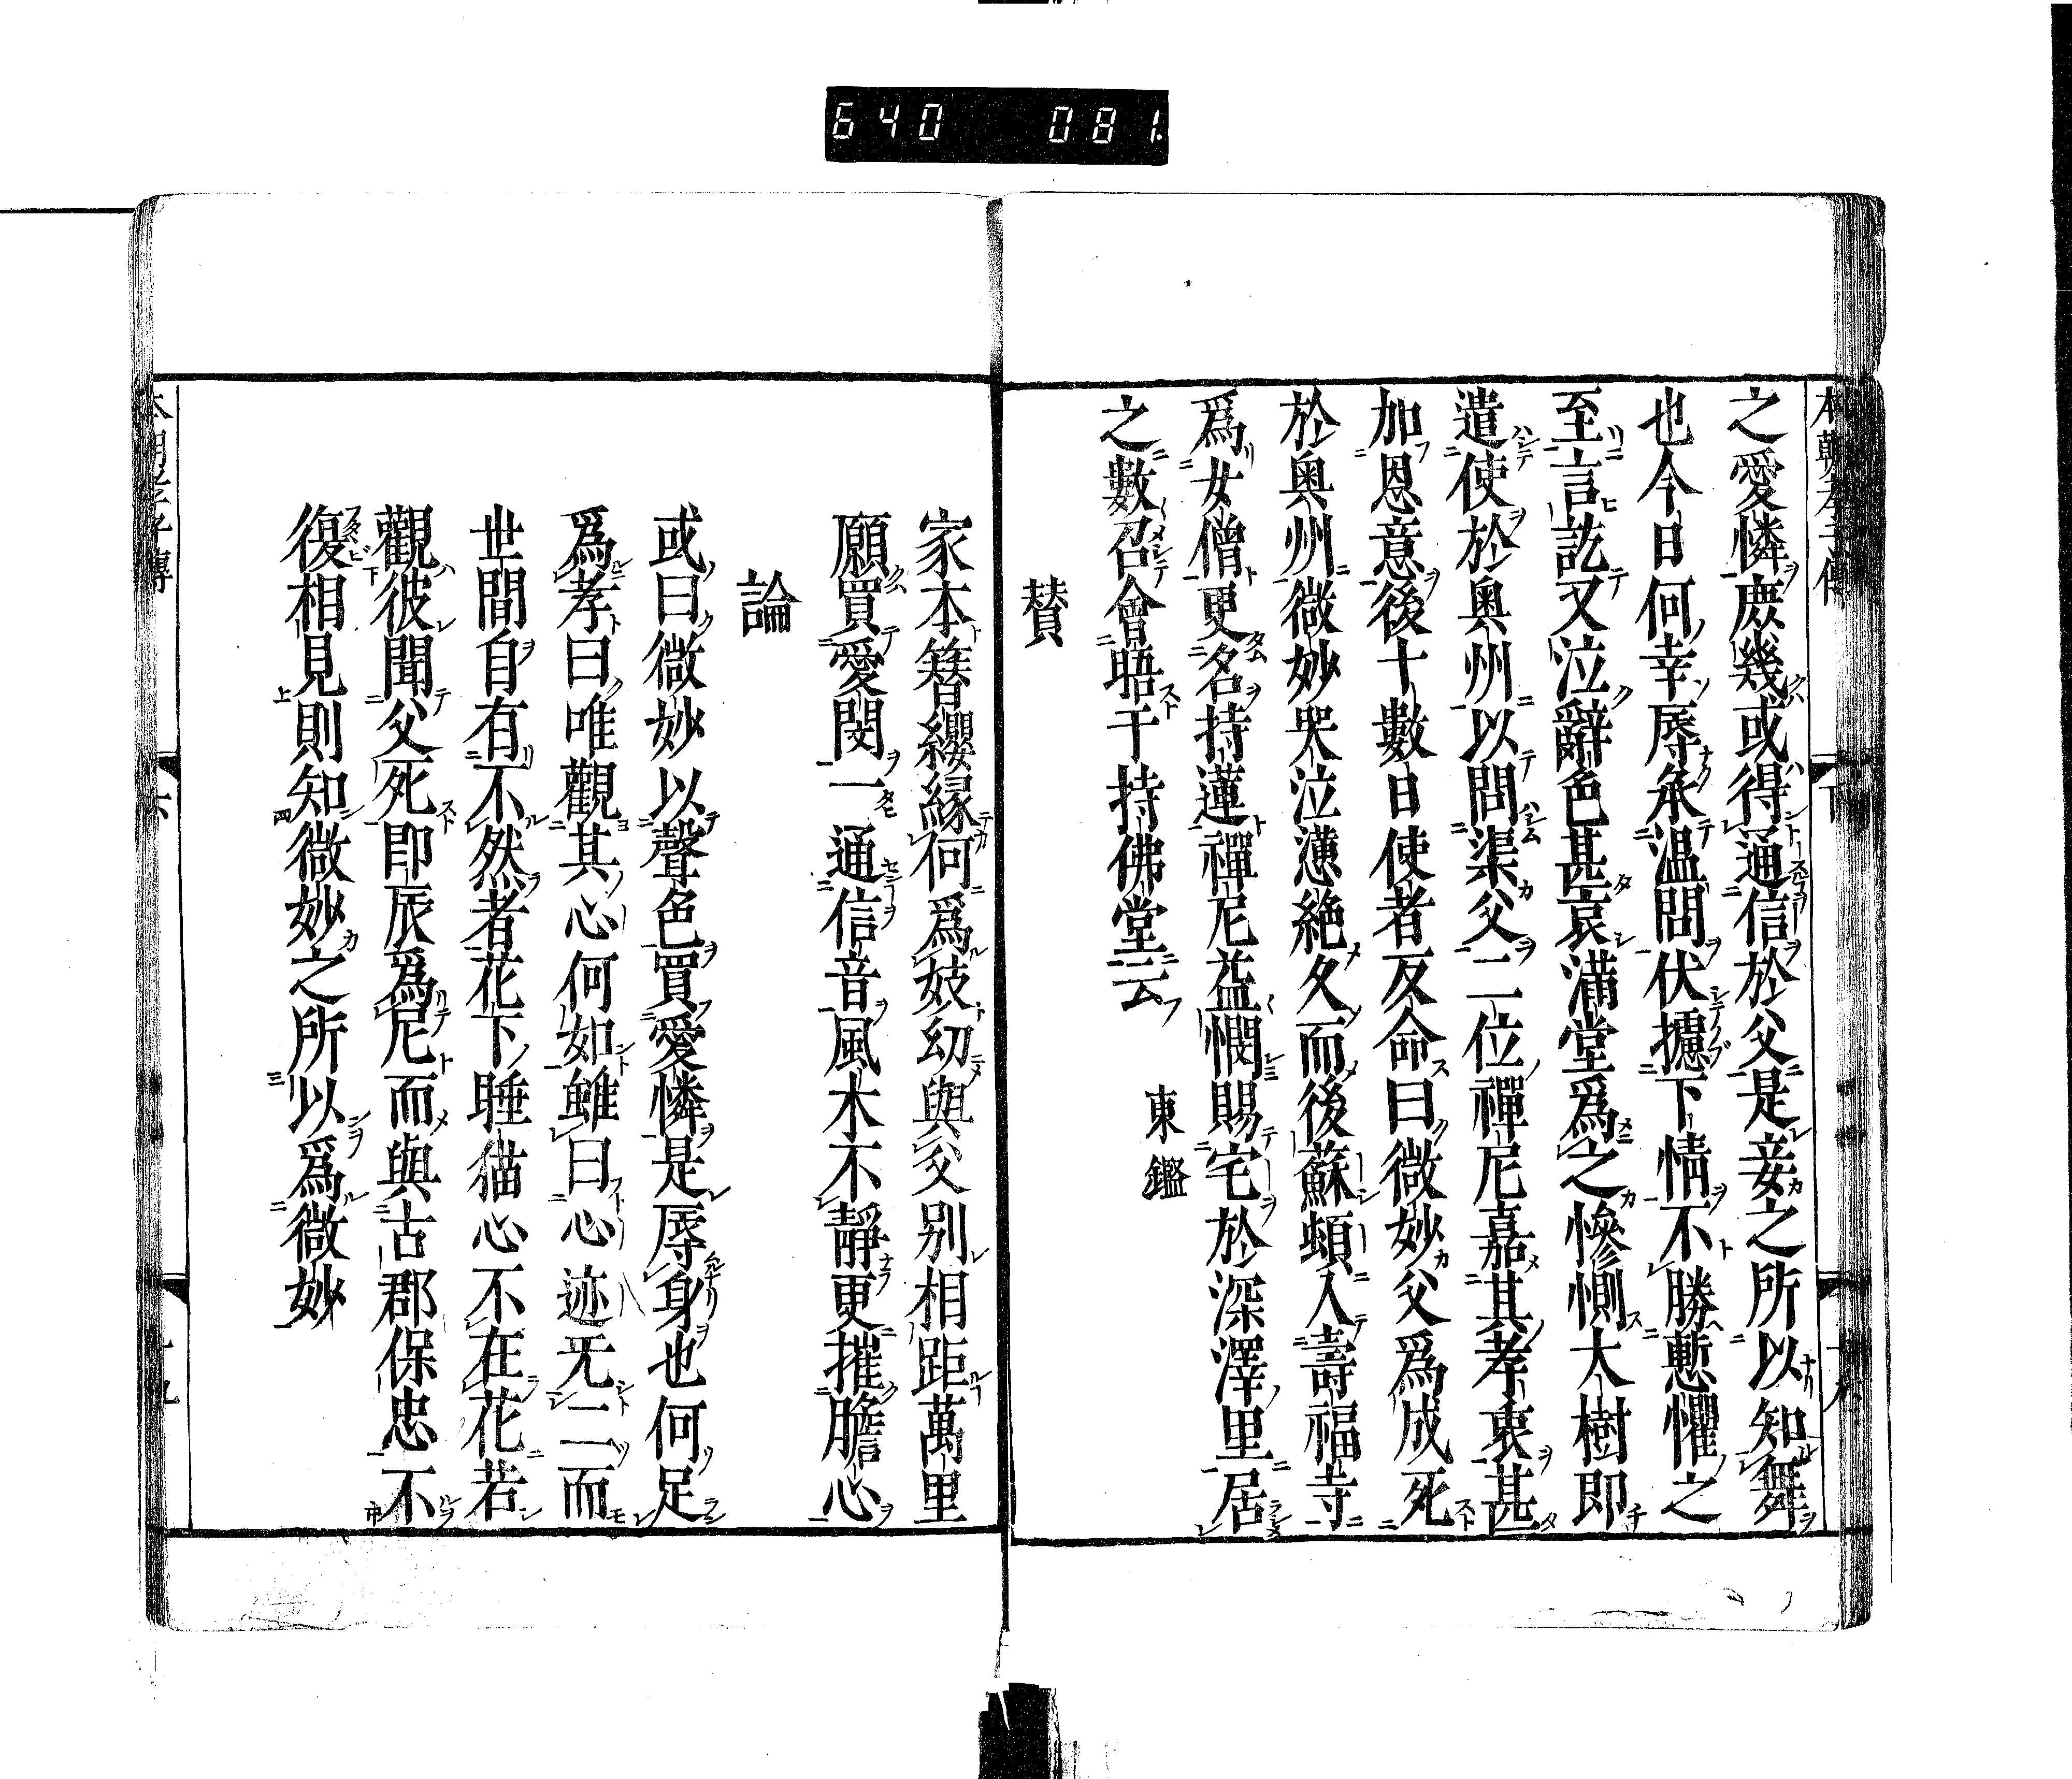 640 081
之愛憐庶幾或得通信於父是妾之所以知舞
也今日何幸辱承温問伏攄下情不勝慙懼之
至言訖又泣辭色甚哀滿堂爲之慘惻大樹即
遣使於奥州以問渠父二位禪尼嘉其孝衷甚
加恩意後十數日使者反命曰微妙父爲成死
於奥州微妙哭泣懣絶久而後蘇頓入壽福寺
爲女僧更名持蓮禪尼益憫賜宅於深澤里居
之數召會晤于持佛堂云 東鑑
賛
家本簪纓縁何爲妓幼與父别相距萬里
願買愛閔一通信音風木不靜更摧膽心
論
或曰微妙以聲色買愛憐是辱身也何足
爲孝曰唯觀其心何如雖曰心迹无二而
世間自有不然者花下睡猫心不在花若
觀彼聞父死即辰爲尼而與古郡保忠不
復相見則知微妙之所以爲微妙